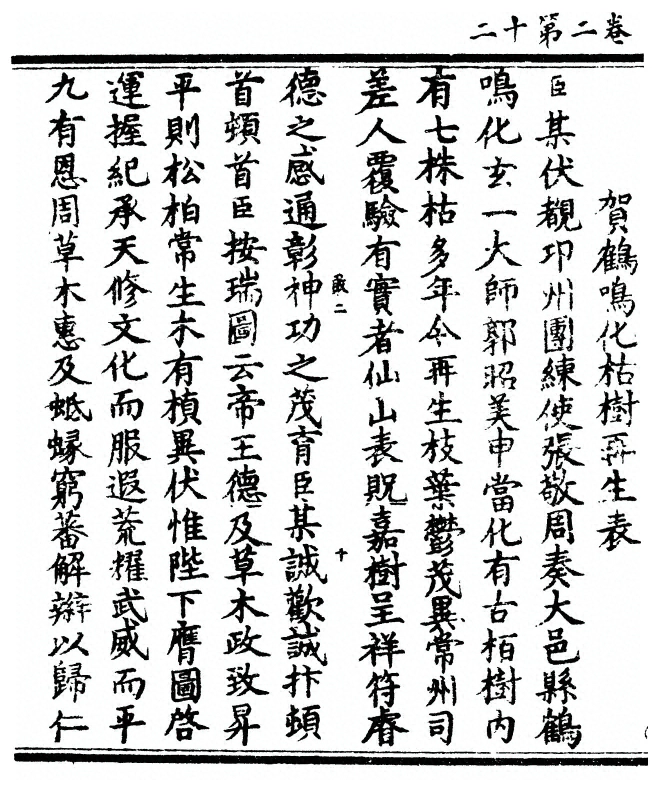 卷二第十二
賀鶴鳴化枯樹再生表
臣某伏覩邛州團練使張敬周奏大邑縣鶴
鳴化玄一大師郭昭美申當化有古栢樹內
有七株枯多年今再生枝葉鬱茂異常州司
差人覆驗有實者仙山表貺嘉樹呈祥符睿
德之感通彰神功之茂育臣某誠歡誠抃頓
首頓首臣按瑞圖云帝王德及草木政致昇
平則松柏常生木有楨異伏惟陛下膺圖啓
運握紀承天修文化而服遐荒耀武威而平
九有恩周草木惠及蚳蝝窮蕃解辮以歸仁